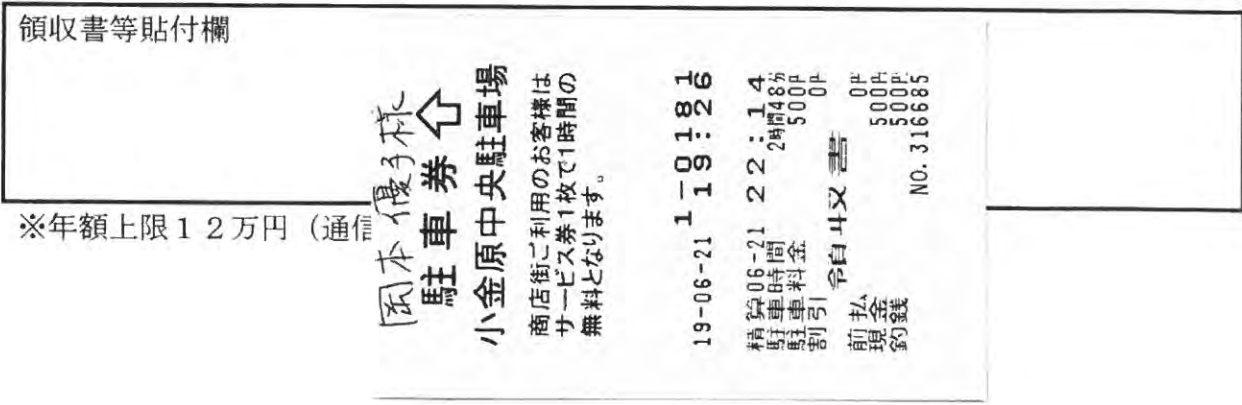 領収書等貼付欄
※年額上限12万円（通信
岡本優子様
駐車券
小金原中央駐車場
商店街ご利用のお客様は
サービス券1枚で1時間の
無料となります。
1-0181
19-06-21 19:26
精算06-21 22:14
駐車時間 2時間48分
駐車料金 500円
割引 0円
領収書
前払 0円
現金 500円
釣銭 500円
NO.316685